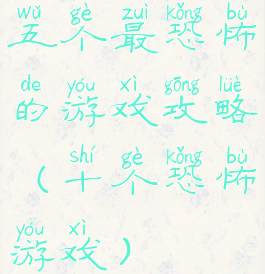 wǔ gè zuì kǒng bù
五个最恐怖
de yóu xì gōng lüè
的游戏攻略
shí gè kǒng bù
（十个恐怖
yóu xì
游戏）